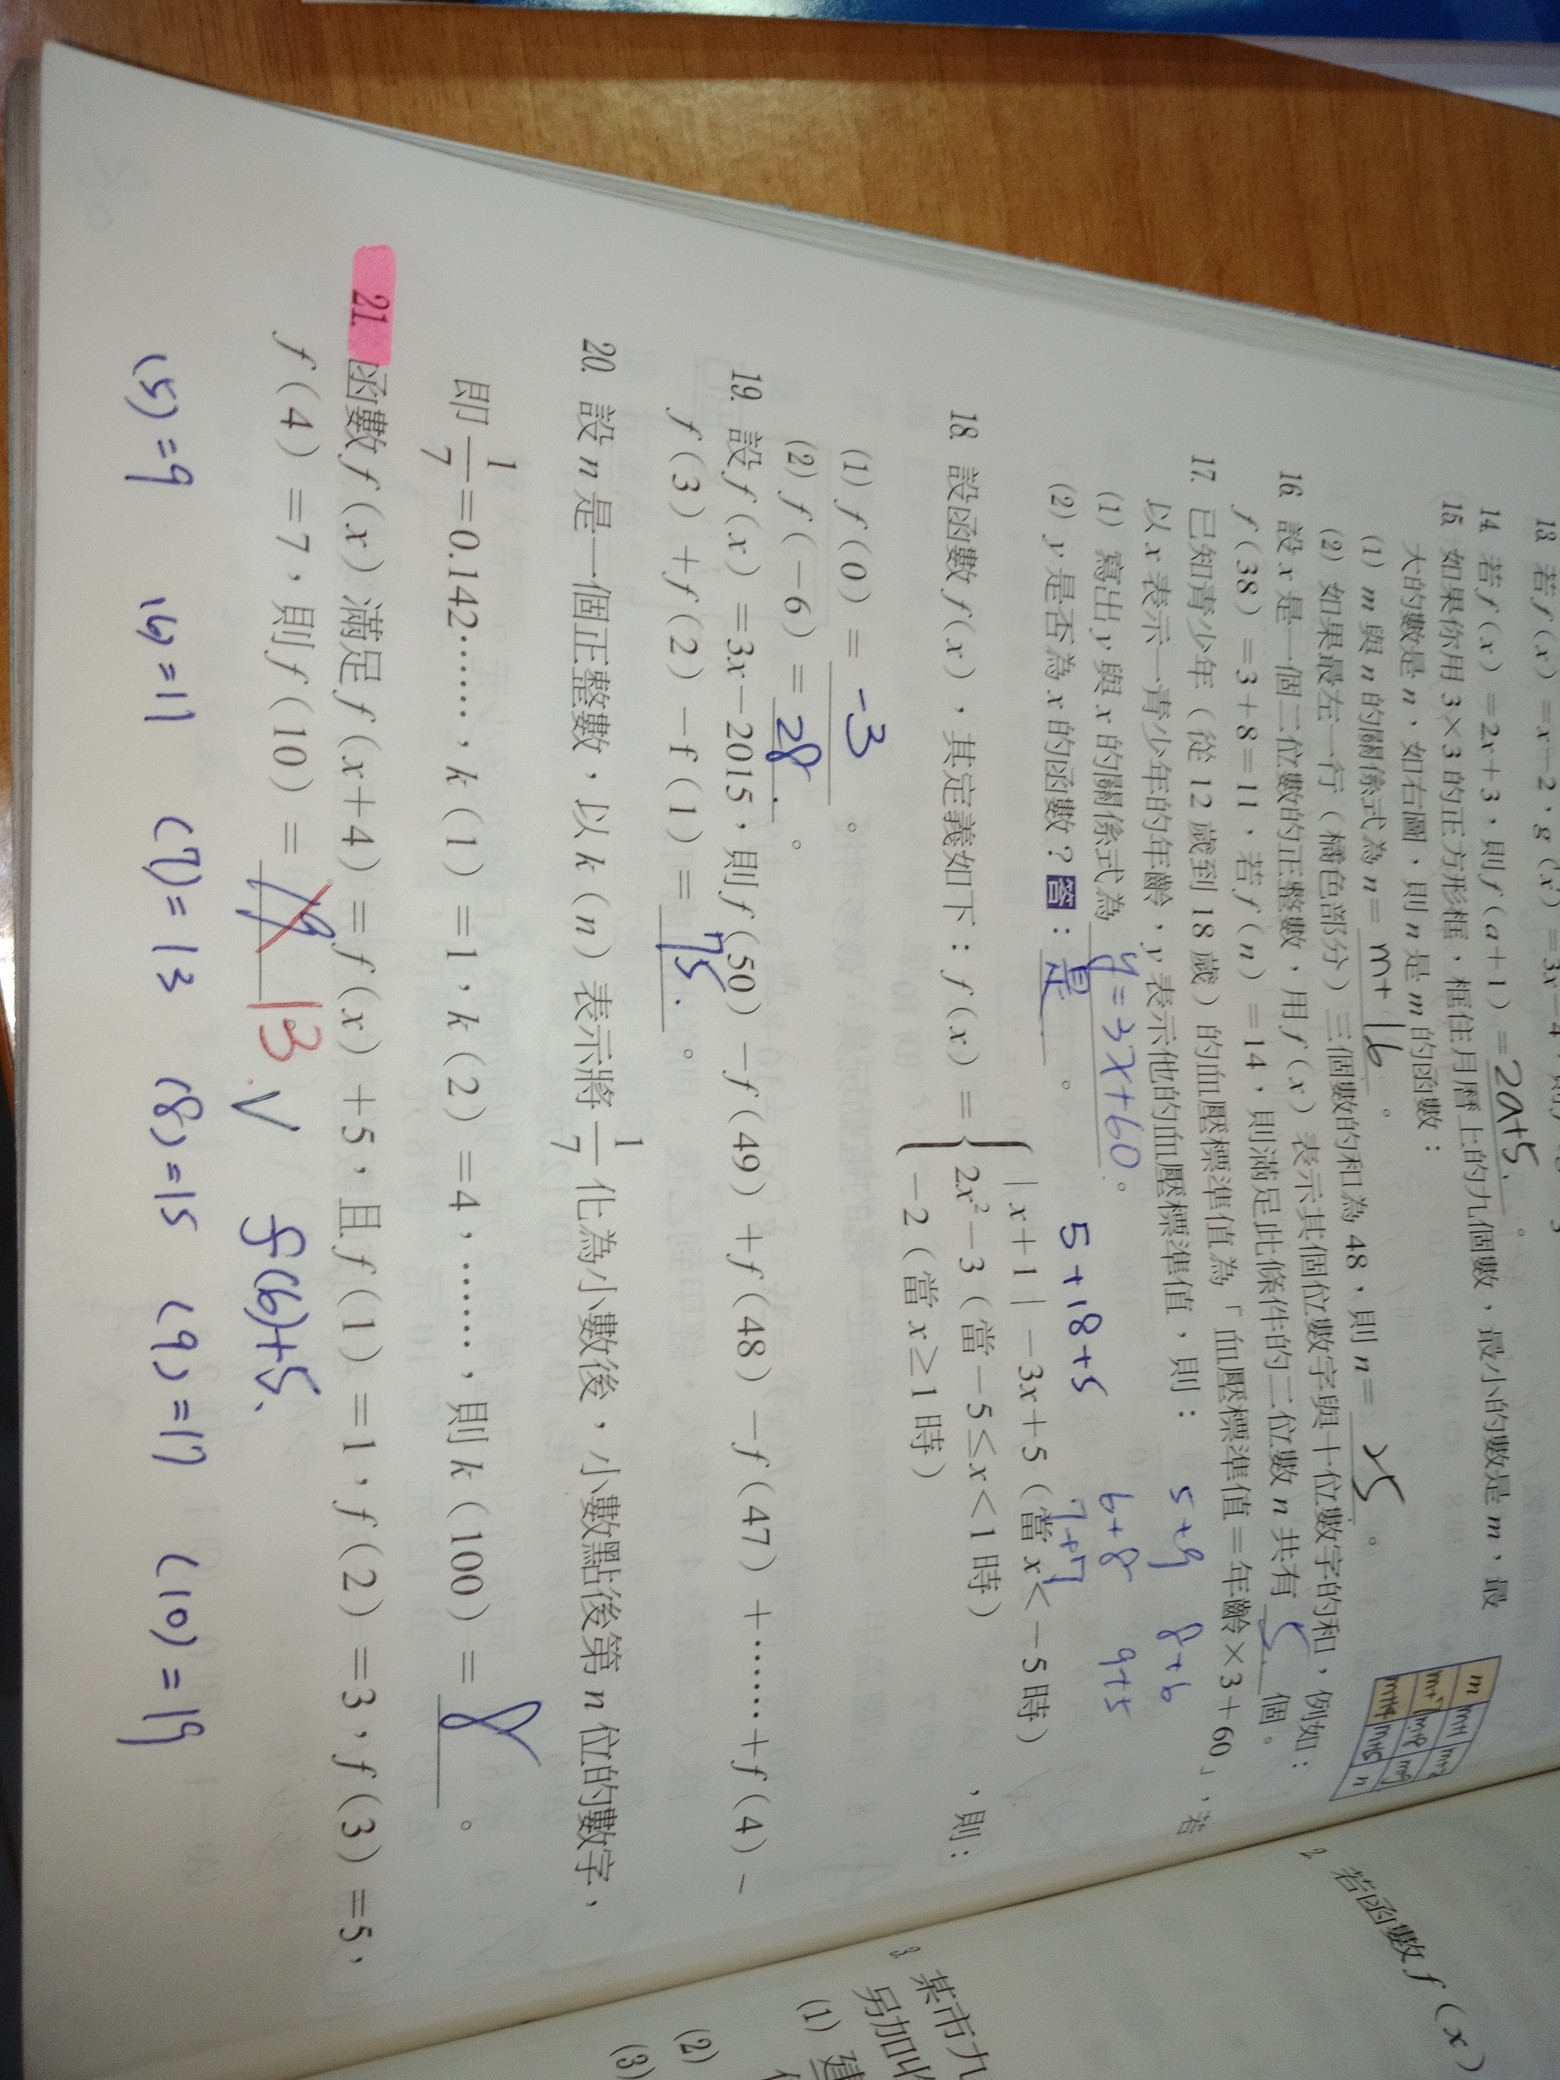 13. 若 f(x)=x-2，g(x)=3x-4
14. 若 f(x)=2x+3，則 f(a+1)=2a+5。
15. 如果你用 3×3 的正方形框，框住月曆上的九個數，最小的數是 m，最
大的數是 n，如右圖，則 n 是 m 的函數：
(1) m 與 n 的關係式為 n=m+16。
(2) 如果最左一行（橘色部分）三個數的和為 48，則 n=25。
m m+1 m+2
m+7 m+8 m+9
m+14 m+15 n
16. 設 x 是一個二位數的正整數，用 f(x) 表示其個位數字與十位數字的和，例如：
f(38)=3+8=11，若 f(n)=14，則滿足此條件的二位數 n 共有 5 個。
17. 已知青少年（從 12 歲到 18 歲）的血壓標準值為「血壓標準值=年齡×3+60」，若
以 x 表示一青少年的年齡，y 表示他的血壓標準值，則：
(1) 寫出 y 與 x 的關係式為 y=3x+60。
(2) y 是否為 x 的函數？答：是。
5+9 8+6
6+8 9+5
7+7
5+18+5
18. 設函數 f(x)，其定義如下：f(x)={ |x+1|-3x+5（當 x<-5 時）
2x²-3（當 -5≤x<1 時），則：
-2（當 x≥1 時）
(1) f(0)=-3。
(2) f(-6)=28。
19. 設 f(x)=3x-2015，則 f(50)-f(49)+f(48)-f(47)+……+f(4)-
f(3)+f(2)-f(1)=75.。
20. 設 n 是一個正整數，以 k(n) 表示將 1/7 化為小數後，小數點後第 n 位的數字，
即 1/7=0.142……，k(1)=1，k(2)=4，……，則 k(100)=8。
21. 函數 f(x) 滿足 f(x+4)=f(x)+5，且 f(1)=1，f(2)=3，f(3)=5，
f(4)=7，則 f(10)=19 13 f(6)+5.
(5)=9 (6)=11 (7)=13 (8)=15 (9)=17 (10)=19
2. 若函數 f(x)
3. 某市九
另加收
(1) 建
(2)
(3)